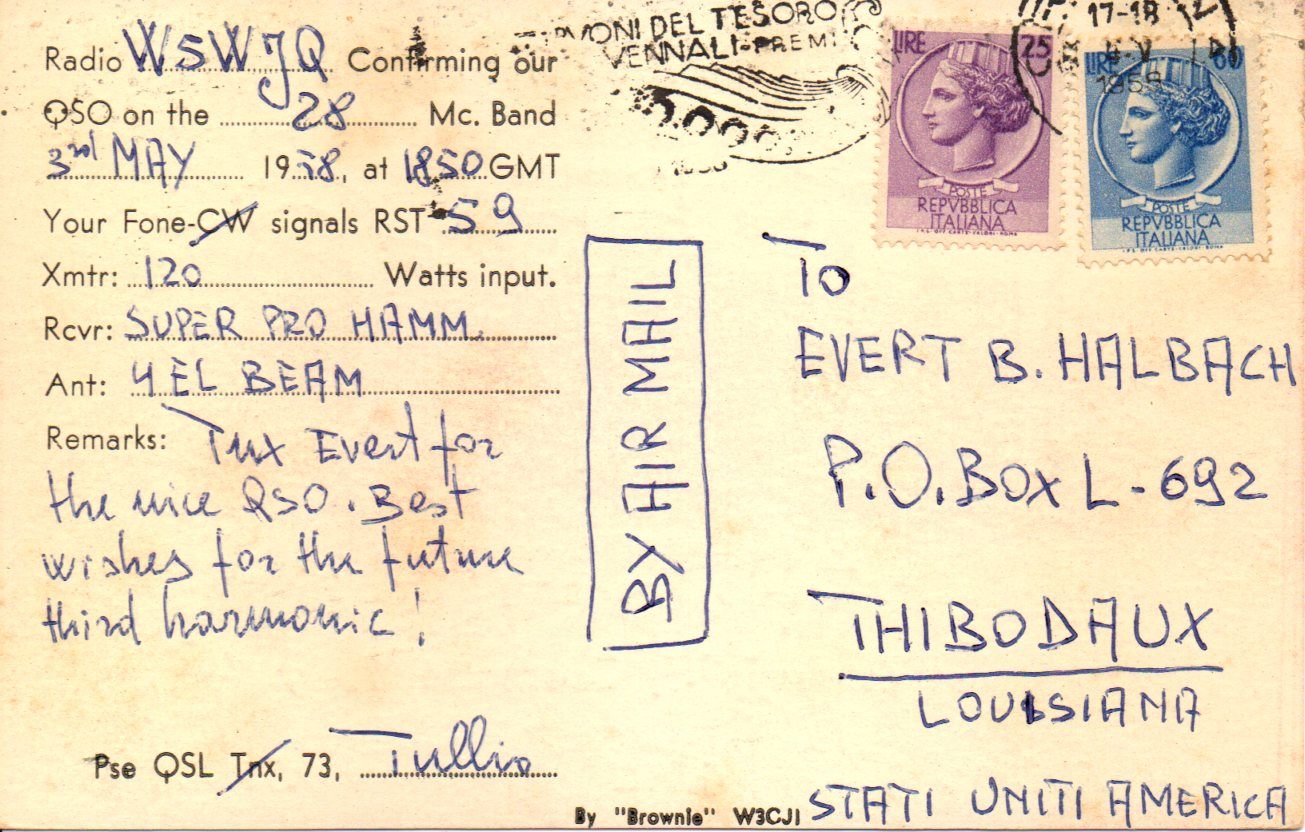 Radio W5WJQ Confirming our
QSO on the 28 Mc. Band
3rd MAY 1958, at 1850 GMT
Your Fone-CW signals RST 59
Xmtr: 120 Watts input.
Rcvr: SUPER PRO HAMM.
Ant: 4 EL BEAM
Remarks: Tnx Evert for
the nice QSO. Best
wishes for the future
third harmonic!
Pse QSL Tnx, 73, Tullio
By "Brownie" W3CJI
BY AIR MAIL
DEL TESORO
VENNALI-PREMI
LIRE 25
POSTE
REPVBBLICA
ITALIANA
17-18
LIRE 60
POSTE
REPVBBLICA
ITALIANA
To
EVERT B. HALBACH
P.O. BOX L-692
THIBODAUX
LOUISIANA
STATI UNITI AMERICA